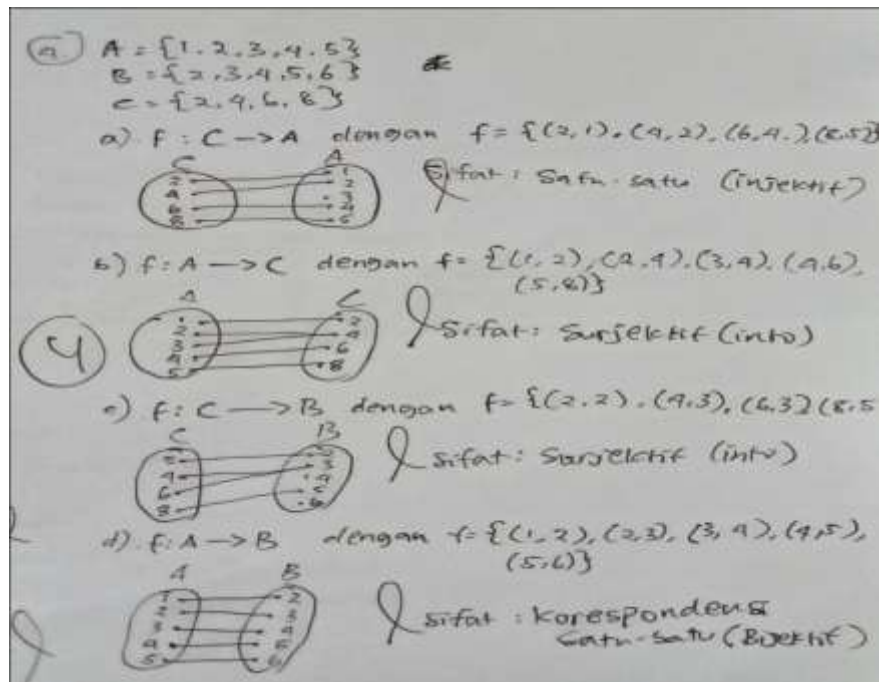 a. A = {1.2.3.4.5}
B = {2,3,4,5,6}
C = {2,4,6,8}
a). f : C —> A dengan f = {(2,1), (4,2), (6,4), (8,5)}
C A
2 1
4 2
6 3
8 4
5
Sifat : Satu-satu (injektif)
b) f : A —> C dengan f = {(1,2), (2,4), (3,4), (4,6),
(5,8)}
A C
2 2
3 4
4 6
5 8
Sifat : Surjektif (into)
4
c) f : C —> B dengan f = {(2,2), (4,3), (6,3) (8,5
C B
2 2
4 3
6 4
8 5
Sifat : Surjektif (into)
d). f : A —> B dengan f = {(1,2), (2,3), (3,4), (4,5),
(5,6)}
A B
1 2
2 3
3 4
4 5
5 6
Sifat : Korespondensi
satu-satu (Bijektif)